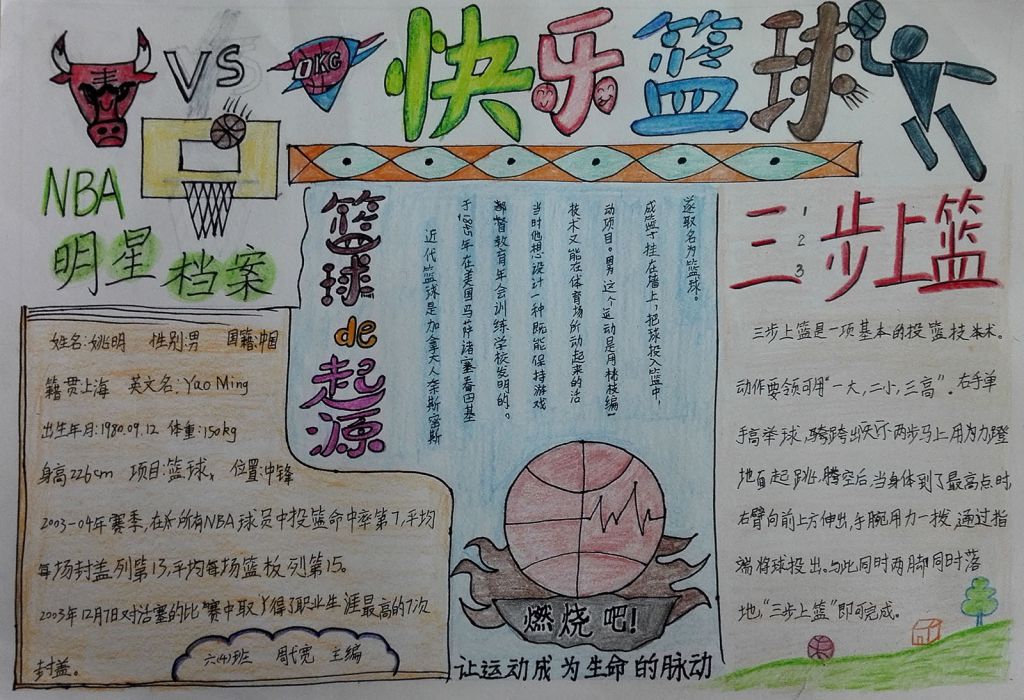 VS
OKC
快乐篮球
NBA
明星档案
姓名:姚明 性别:男 国籍:中国
籍贯上海 英文名:Yao Ming
出生年月:1980.09.12 体重:150kg
身高226cm 项目:篮球, 位置:中锋
2003-04年赛季,在所有NBA球员中投篮命中率第7,平均
每场封盖列第13,平均每场篮板,列第15。
2003年12月7日对活塞的比赛中取得了职业生涯最高的7次
封盖。
六(4)班 周代宽 主编
篮球de起源
近代篮球是加拿大人奈斯密斯
于1895年在美国马萨诸塞春田基
督教育年会训练学校发明的。
当时他想设计一种既能保持游戏
技术又能在体育场所动起来的活
动项目。因为这个运动是用桃枝编
成篮子挂在墙上,把球投入篮中,
遂取名为篮球。
燃烧吧!
让运动成为生命的脉动
三步上篮
1
2
3
三步上篮是一项基本的投篮技术。
动作要领可用“一大,二小,三高”。右手单
手高举球,跨出两步马上用力蹬
地面起跳.腾空后,当身体到了最高点时,
右臂向前上方伸出,手腕用力一拨,通过指
端将球投出.与此同时两脚同时落
地,“三步上篮”即可完成。